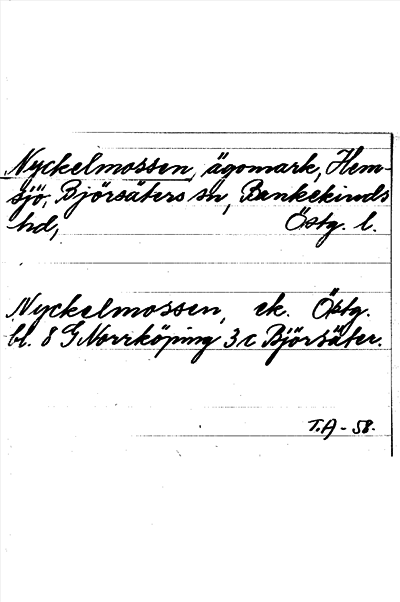 Nyckelmossen, ägomark, Hem-
sjö, Björsäters sn, Bankekinds
hd, Östg. l.
Nyckelmossen, ek. Östg.
bl. 8 G Norrköping 3c Björsäter.
T.A - 58.